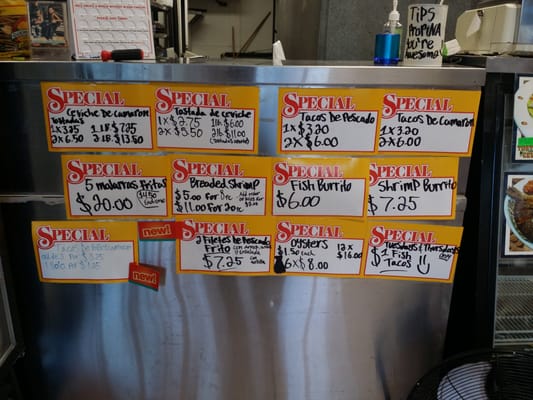 TIPS
PROPINA
you're
AWESOME
SPECIAL
Ceviche De Camaron
Tostadas
1x 3.25 1 lb $7.25
2x 6.50 2 lb $13.50
SPECIAL
Tostada de ceviche
1x $2.75 1 lb $6.00
2x $5.50 2 lb $11.00
SPECIAL
Tacos De Pescado
1x $3.20
2x $6.00
SPECIAL
Tacos De Camaron
1x $3.20
2x $6.00
SPECIAL
5 mojarras fritas
$20.00
SPECIAL
Breaded Shrimp
$5.00 for Doz
$11.00 for 2Doz
SPECIAL
Fish Burrito
$6.00
SPECIAL
Shrimp Burrito
$7.25
SPECIAL
Tacos De
new!
new!
SPECIAL
Filetes De Pescado
Frito
$7.25
SPECIAL
Oysters
$1.50 each
6 x $8.00
12 x
$16.00
SPECIAL
Tuesdays & Thursdays
$1 Fish
Tacos